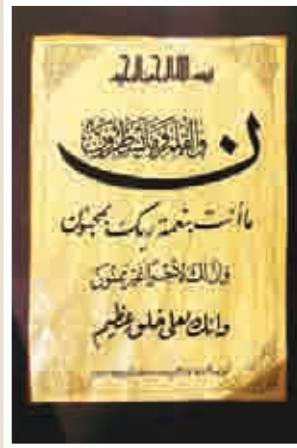 بسم الله الرحمن الرحيم
ن والقلم وما يسطرون
ما أنت بنعمة ربك بمجنون
وإن لك لأجرا غير ممنون
وانك لعلى خلق عظيم